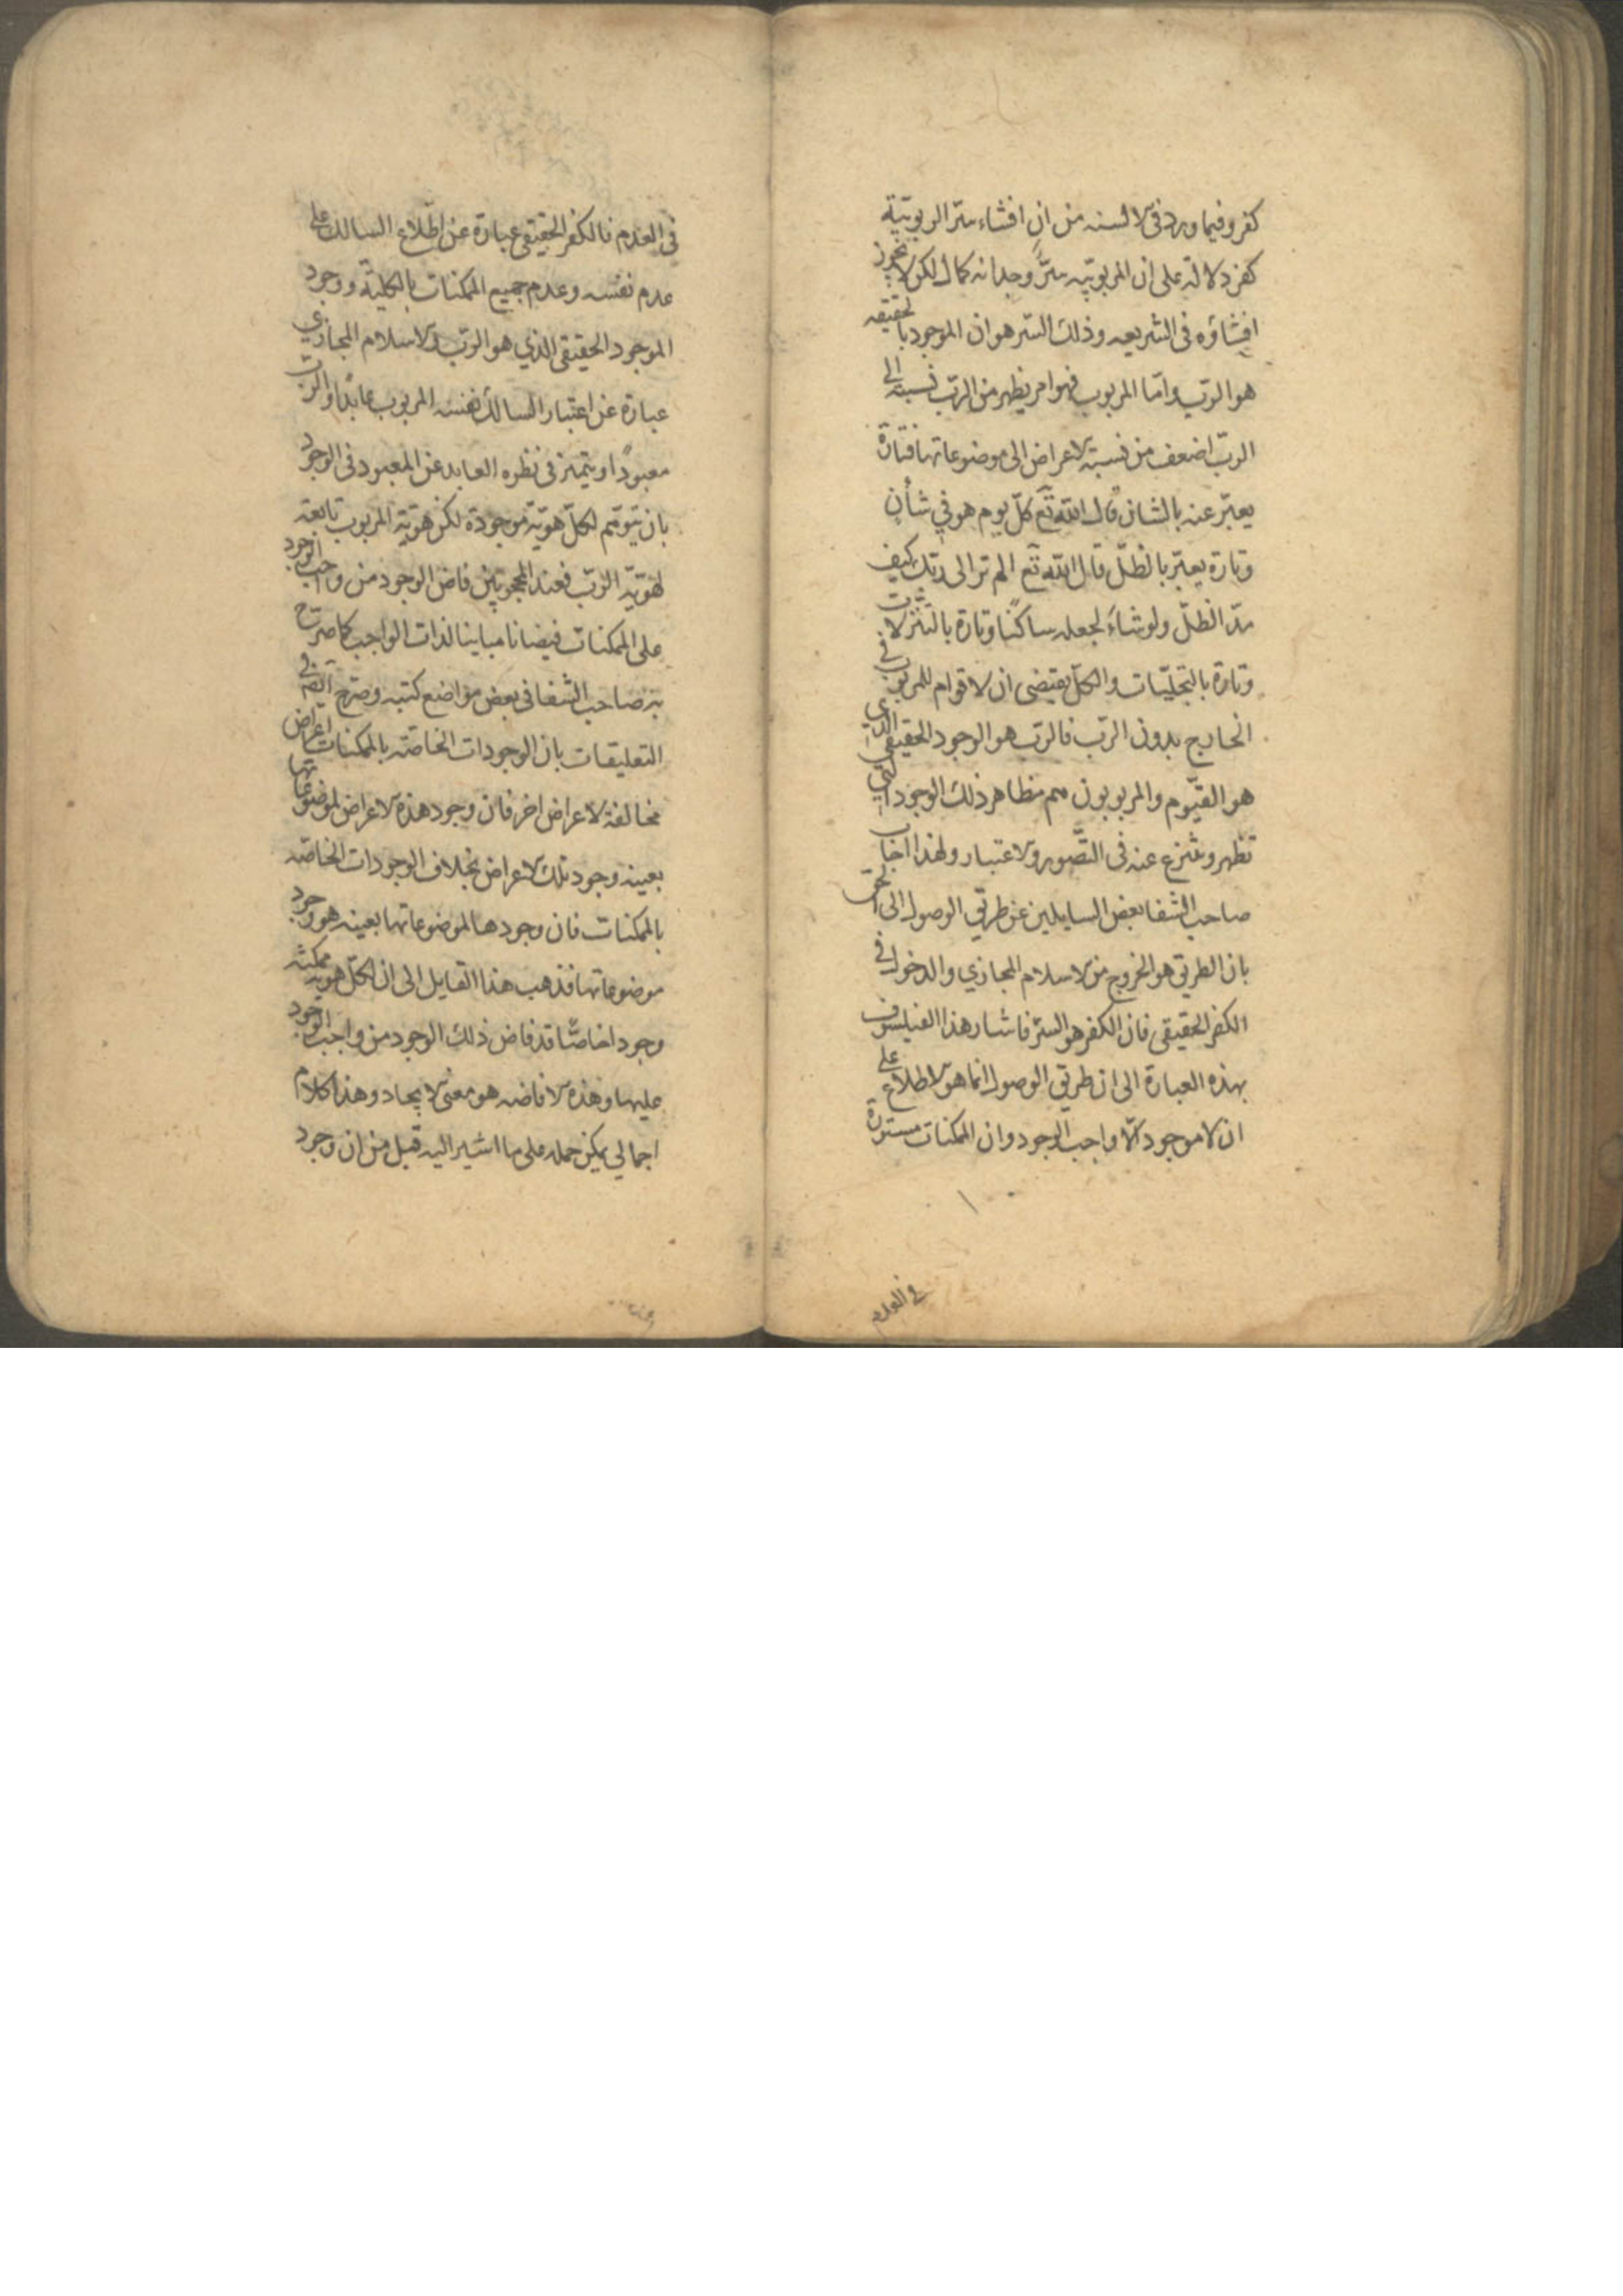 كفر وفيما ورد فى الالسنه من ان افشاء سرّ الربوبيّة
كفر دلالة على ان المربوبيّه سرّ وجدانه كمال لكن لا يجوز
افشاؤه فى الشريعه وذلك السّر هو ان الموجود بالحقيقه
هو الربّ واما المربوب فهو امر يظهر من الربّ نسبته الى
الربّ اضعف من نسبة الاعراض الى موضوعاتها فتارة
يعبّر عنه بالشان قال الله تع كلّ يوم هو في شأن
وتارة يعبّر بالظلّ قال الله تع الم تر الى ربّك كيف
مدّ الظلّ ولو شاءَ لجعله ساكنًا وتارة بالتنزلات
وتارة بالتجلّيات والكلّ يقتضى ان لا قوام للمربوب فى
الخارج بدون الربّ فالربّ هو الوجود الحقيقى الذي
هو القيّوم والمربوبون هم مظاهر ذلك الوجود التي
تظهر وتنتزع عنه فى التّصور والاعتبار ولهذا اجاب
صاحب الشفا بعض السايلين عن طريق الوصول الى الحق
بان الطريق هو الخروج من الاسلام المجازي والدخول في
الكفر الحقيقى فان الكفر هو الستر فاشار هذا الفيلسوف
بهذه العبارة الى ان طريق الوصول انما هو الاطلاع على
ان لا موجود الّا واجب الوجود وان الممكنات مستورة
في العدم
فى العدم فالكفر الحقيقى عبارة عن اطّلاع السالك على
عدم نفسه وعدم جميع الممكنات بالكلية ووجود
الموجود الحقيقى الذي هو الربّ والاسلام المجازي
عبارة عن اعتبار السالك نفسه المربوب عابدًا والربّ
معبودًا ويتميّز فى نظره العابد عن المعبود فى الوجود
بان يتوهّم لكلّ هويّة موجودة لكن هويّة المربوب تابعة
لهويّة الربّ فعند المحجوبين فاض الوجود من واجب الوجود
على الممكنات فيضانا مباينا لذات الواجب كما صرّح
به صاحب الشفا فى بعض مواضع كتبه وصرّح ايضً فى
التعليقات بان الوجودات الخاصّة بالممكنات اعراض
مخالفة لاعراض اخر فان وجود هذه الاعراض لموضوعاتها
بعينه وجود تلك الاعراض بخلاف الوجودات الخاصّه
بالممكنات فان وجودها لموضوعاتها بعينه هو وجود
موضوعاتها فذهب هذا القايل الى ان لكلّ هويّة ممكنة
وجودا خاصًّا قد فاض ذلك الوجود من واجب الوجود
عليها وهذه الافاضه هو معنى الايجاد وهذا كلام
اجمالي يمكن حمله على ما اشير اليه قبل من ان وجود